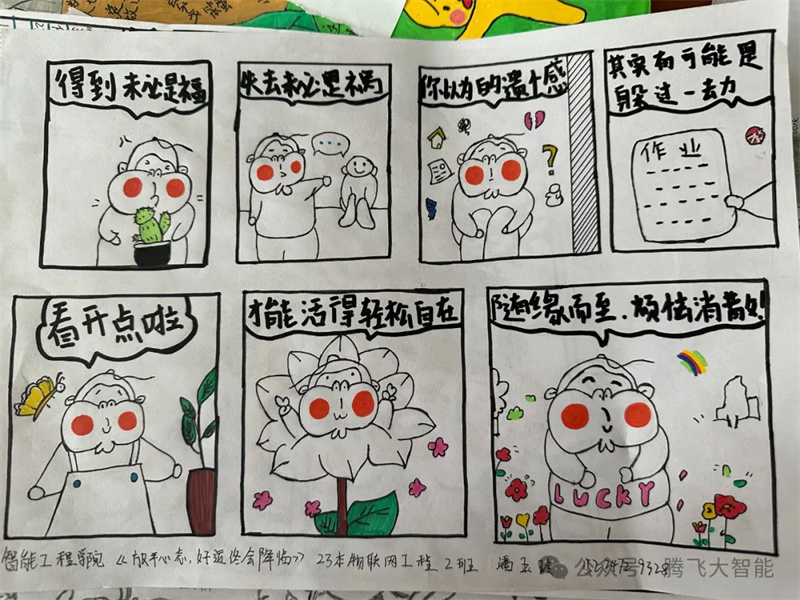 得到未必是福
失去未必是祸
你以为的遗憾
其实有可能是
躲过一劫
作业
看开点啦
才能活得轻松自在
随缘而至.烦恼消散
LUCKY
智能工程学院《放平心态,好运终会降临》23本物联网工程2班 潘玉
公众号 腾飞大智能
9328